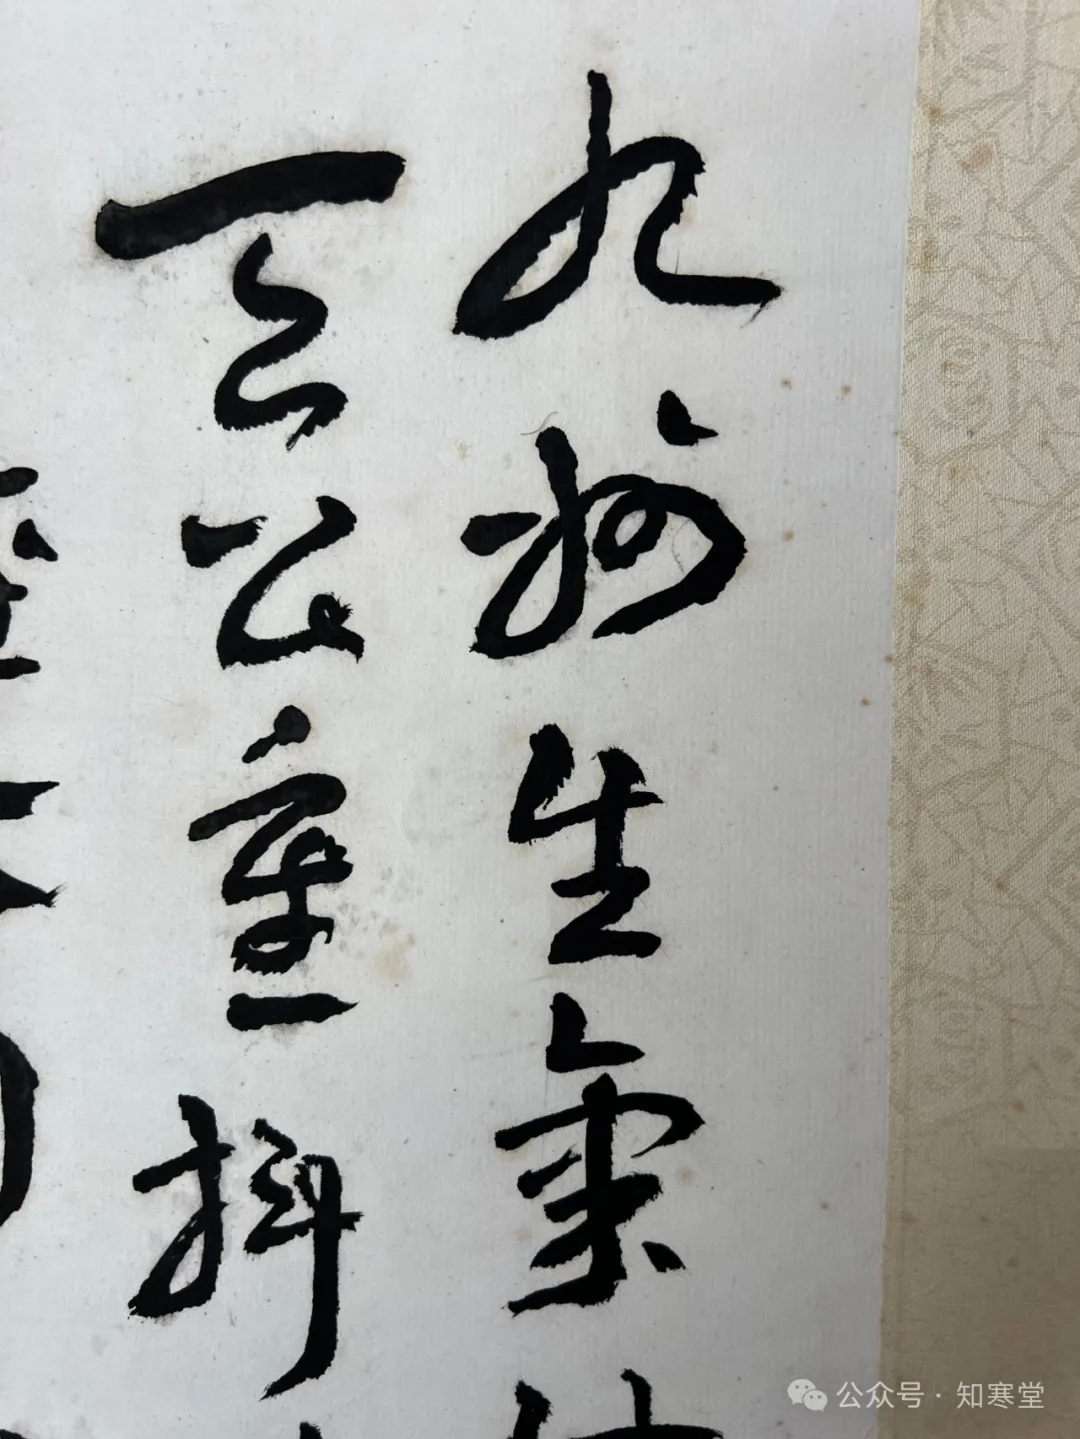 九州生氣
天公重抖
公众号·知寒堂